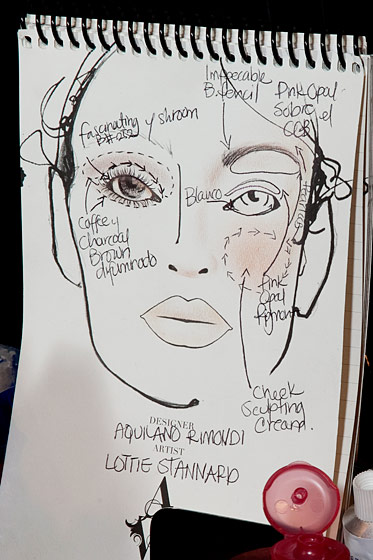 Impeccable
B. Pencil
Pink Opal
Sobre el
fascinating y shroom
Blanco
Coffee y
Charcoal
Brown
difuminado
Pink
Opal
Pigment
Cheek
Sculpting
Cream.
DESIGNER
AQUILANO RIMONDI
ARTIST
LOTTIE STANNARD